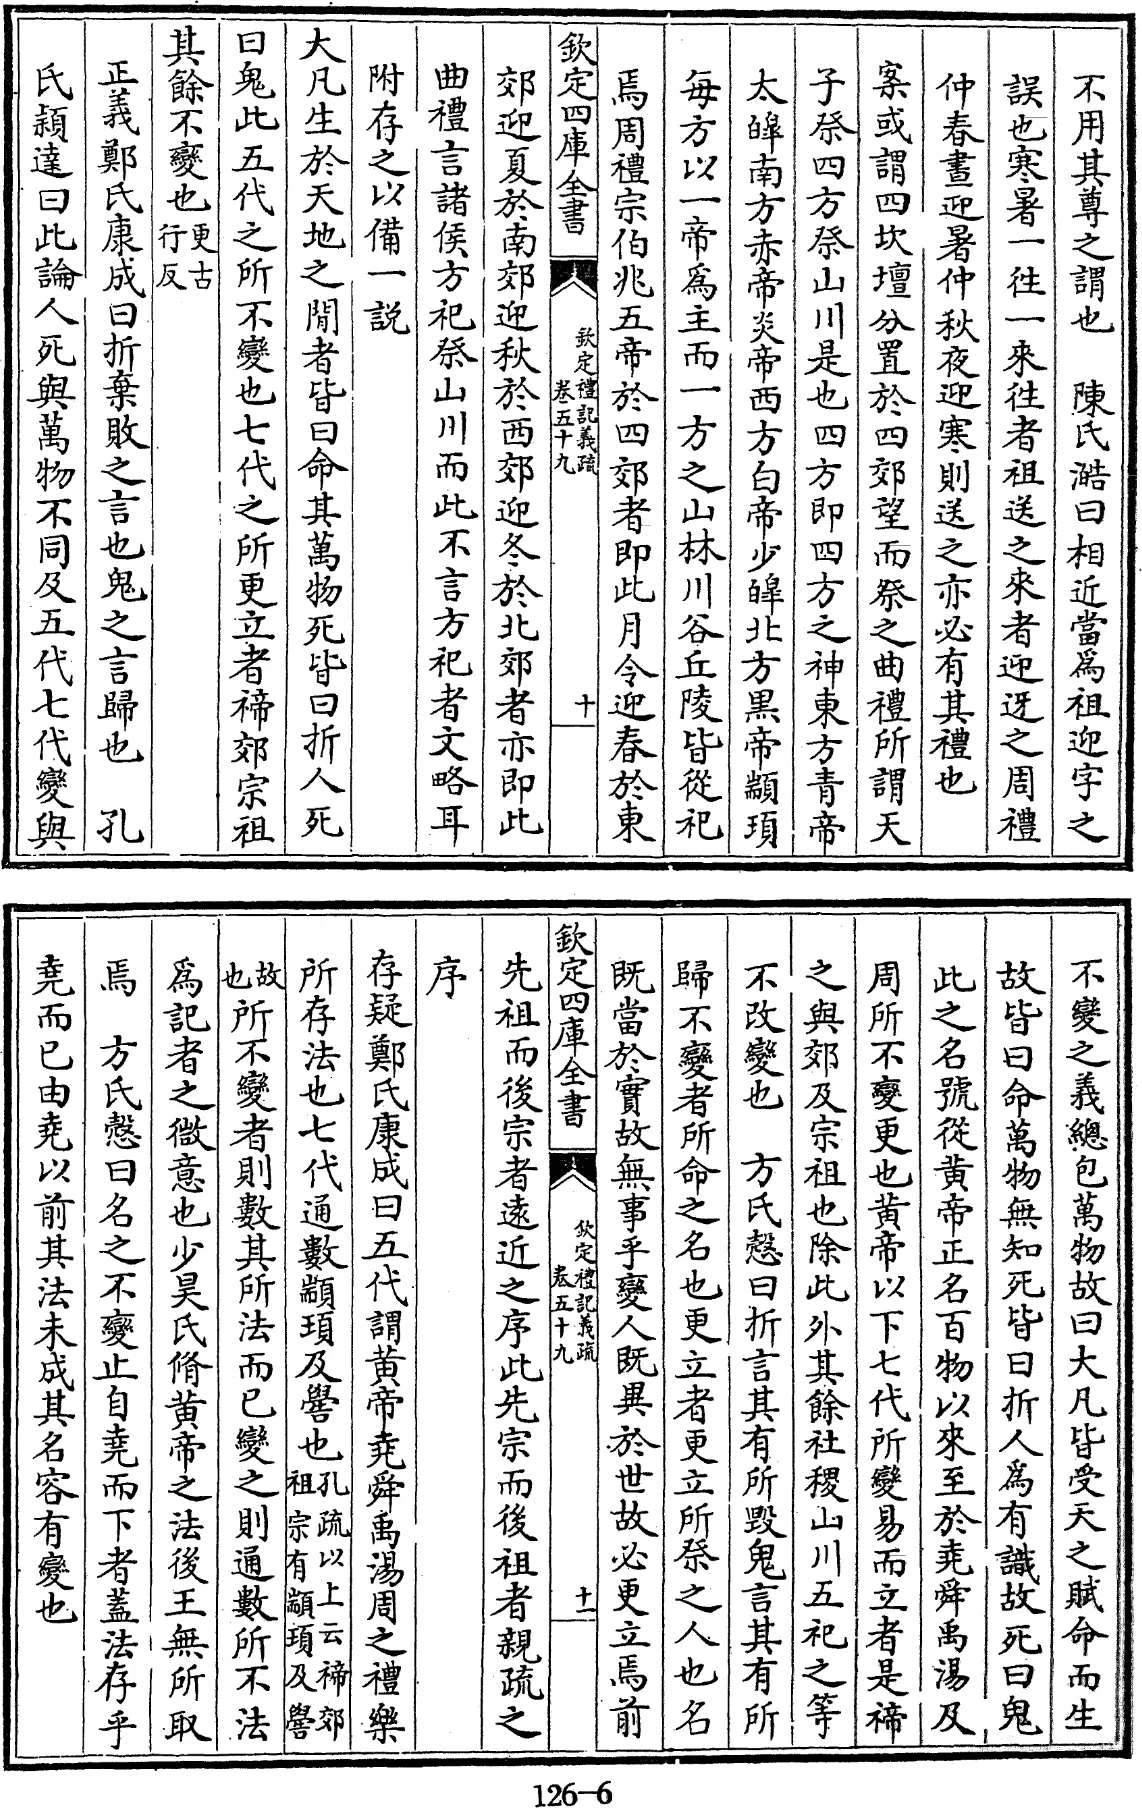 不用其尊之謂也　陳氏澔曰相近當爲祖迎字之
誤也寒暑一往一來往者祖送之來者迎迓之周禮
仲春晝迎暑仲秋夜迎寒則送之亦必有其禮也
案或謂四坎壇分置於四郊望而祭之曲禮所謂天
子祭四方祭山川是也四方即四方之神東方青帝
太皥南方赤帝炎帝西方白帝少皥北方黒帝顓頊
每方以一帝爲主而一方之山林川谷丘陵皆從祀
焉周禮宗伯兆五帝於四郊者即此月令迎春於東
欽定四庫全書　欽定禮記義疏　卷五十九　十
郊迎夏於南郊迎秋於西郊迎冬於北郊者亦即此
曲禮言諸侯方祀祭山川而此不言方祀者文略耳
附存之以備一説
大凡生於天地之閒者皆曰命其萬物死皆曰折人死
曰鬼此五代之所不變也七代之所更立者禘郊宗祖
其餘不變也更古行反
正義鄭氏康成曰折棄敗之言也鬼之言歸也　孔
氏穎達曰此論人死與萬物不同及五代七代變與
不變之義總包萬物故曰大凡皆受天之賦命而生
故皆曰命萬物無知死皆曰折人爲有識故死曰鬼
此之名號從黄帝正名百物以來至於堯舜禹湯及
周所不變更也黄帝以下七代所變易而立者是禘
之與郊及宗祖也除此外其餘社稷山川五祀之等
不改變也　方氏慤曰折言其有所毀鬼言其有所
歸不變者所命之名也更立者更立所祭之人也名
既當於實故無事乎變人既異於世故必更立焉前
欽定四庫全書　欽定禮記義疏　卷五十九　十一
先祖而後宗者遠近之序此先宗而後祖者親疏之
序
存疑鄭氏康成曰五代謂黄帝堯舜禹湯周之禮樂
所存法也七代通數顓頊及嚳也孔疏以上云禘郊祖宗有顓頊及嚳
故也所不變者則數其所法而已變之則通數所不法
爲記者之微意也少昊氏脩黄帝之法後王無所取
焉　方氏慤曰名之不變止自堯而下者蓋法存乎
堯而已由堯以前其法未成其名容有變也
126-6